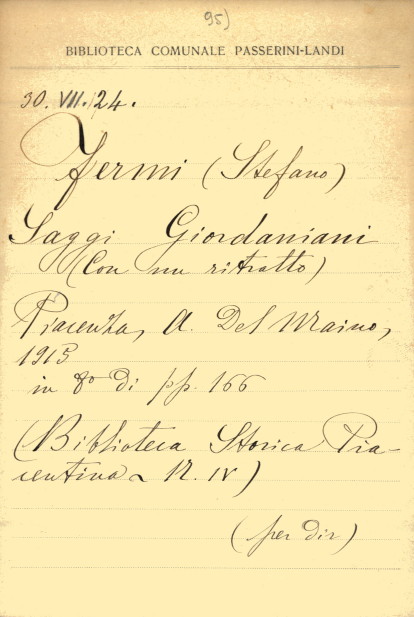 95)
BIBLIOTECA COMUNALE PASSERINI-LANDI
30. VII. 24.
Fermi (Stefano)
Saggi Giordaniani
(Con un ritratto)
Piacenza, A. Del Maino,
1915
in 8° di pp. 166
(Biblioteca Storica Pia-
centina ~ N. IV)
(per dir)